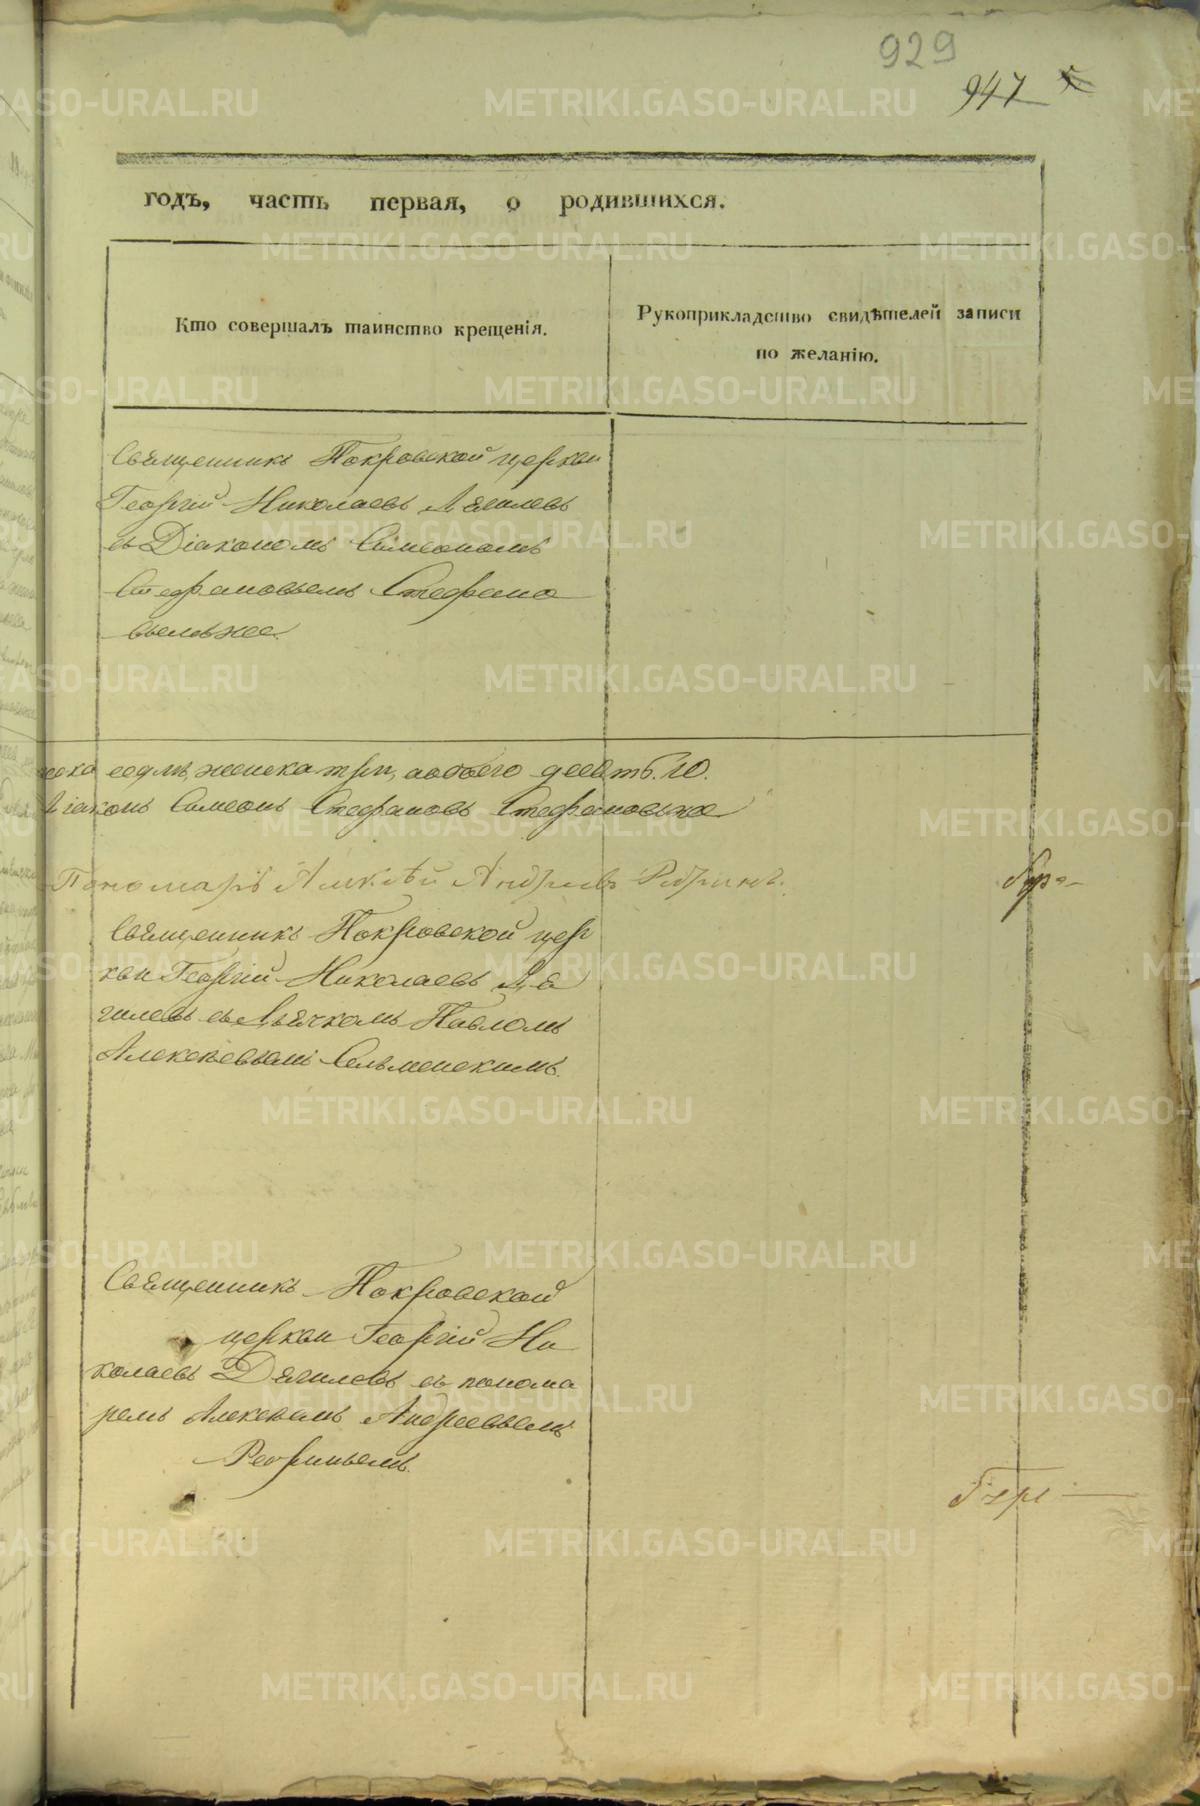 929
947
годъ, часть первая, о родившихся.
Кто совершалъ таинство крещенія.
Рукоприкладство свидѣтелей записи
по желанію.
Священникъ Покровской церкви
Георгій Николаевъ Дягилевъ
съ Діакономъ Симеономъ
Стефановымъ Стефано
вымъ же.
ска седмь, женска три, а обоего десять. 10.
Діаконъ Симеонъ Стефановъ Стефановъ же
Пономарь Алексѣй Андреевъ
Священникъ Покровской цер
кви Георгій Николаевъ Дя
гилевъ съ Дьячкомъ Павломъ
Алексѣевымъ Сельменскимъ.
Священникъ Покровской
церкви Георгій Ни
колаевъ Дягилевъ съ понома
ремъ Алексѣемъ Андреевымъ
METRIKI.GASO-URAL.RU